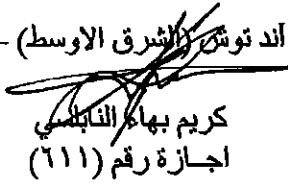 اند توش (الشرق الاوسط) -
كريم بهاء النابلسي
اجازة رقم (٦١١)